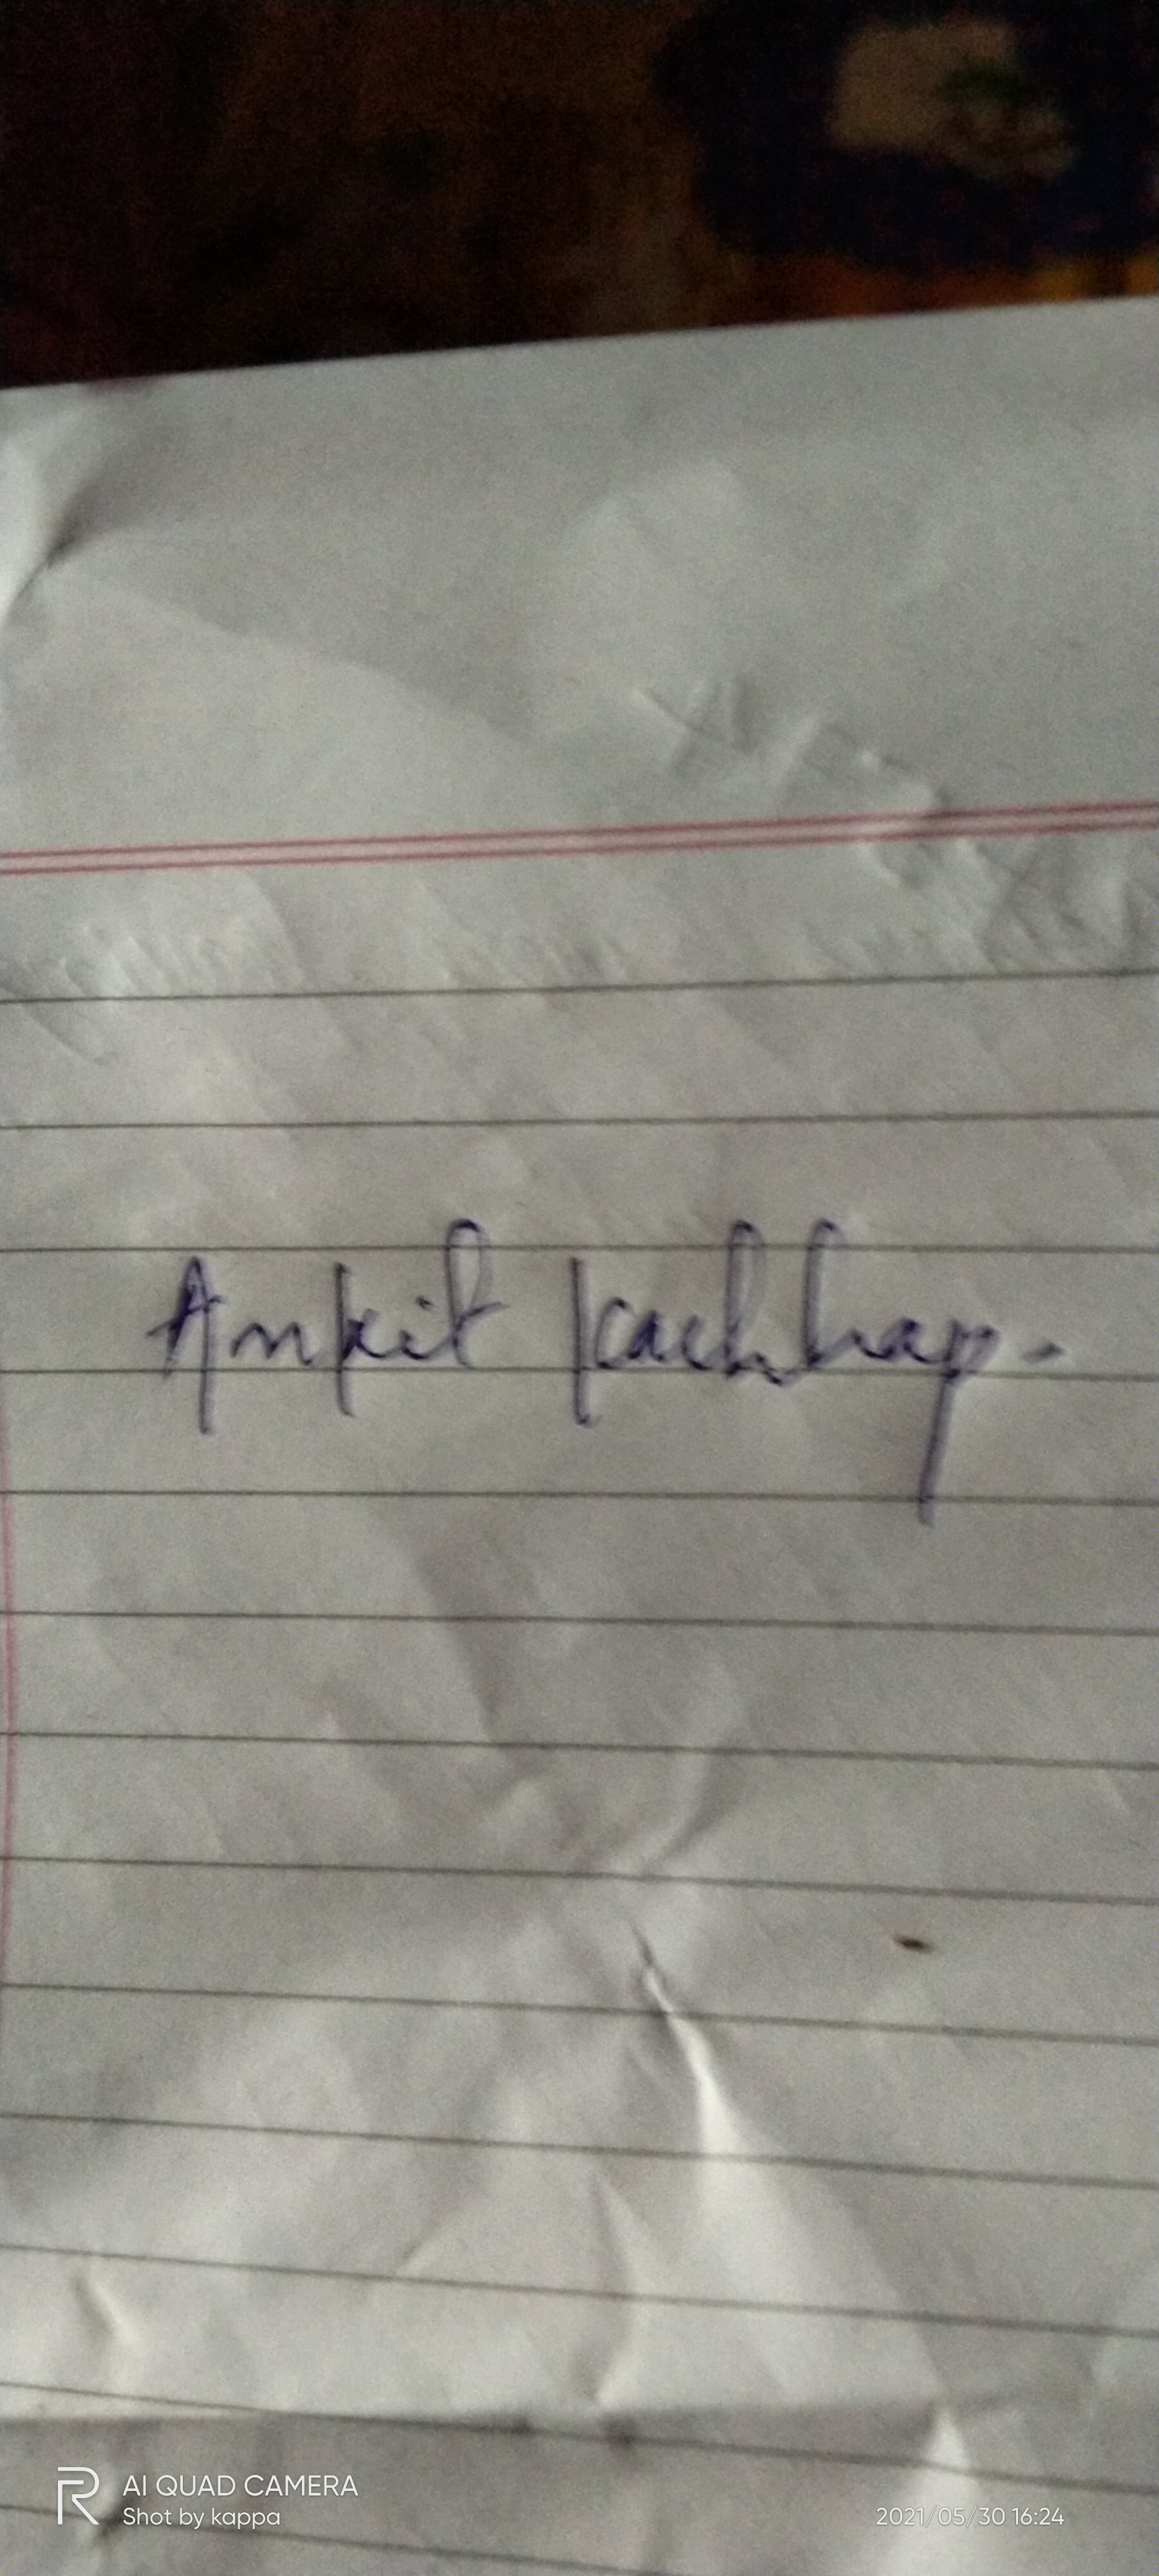 Ankit Kachhap.
AI QUAD CAMERA
Shot by kappa
2021/05/30 16:24